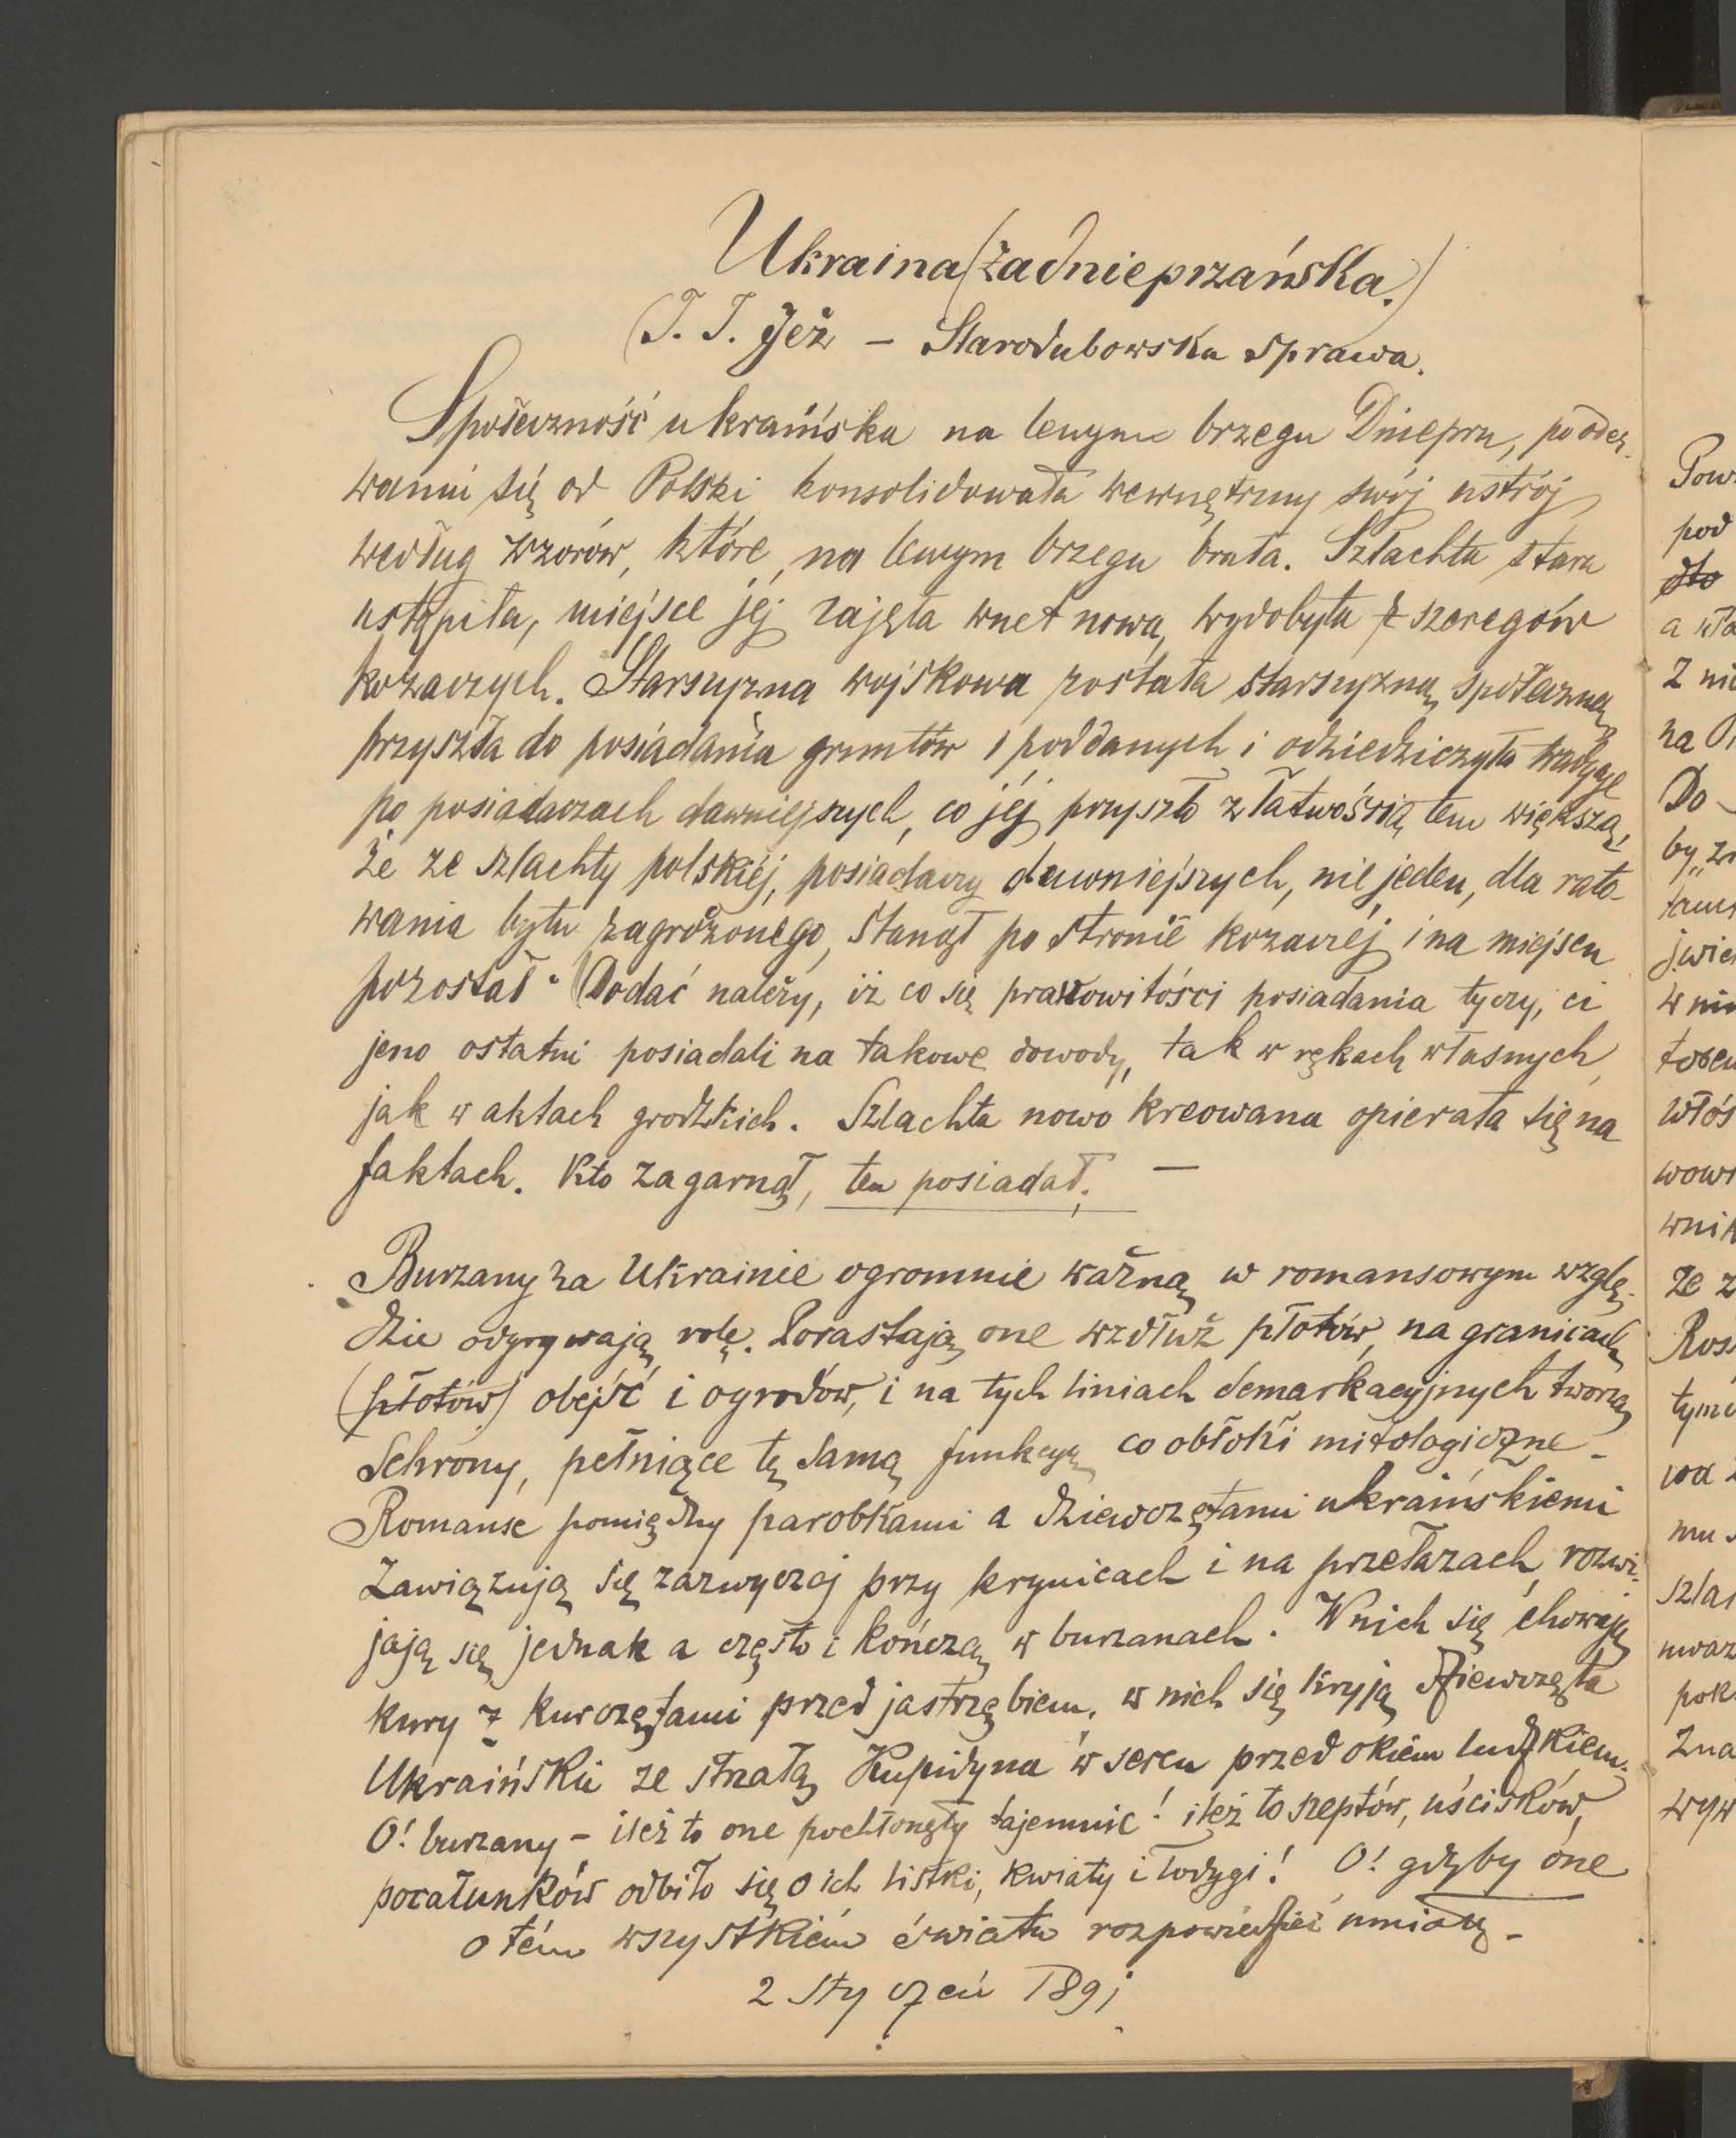 Ukraina (zadnieprzańska.)
(T. T. Jeż – Starodubowska sprawa.
Społeczność ukraińska na lewym brzegu Dniepru, po oder-
waniu się od Polski konsolidowała wewnętrzny swój ustrój
według wzorów, które na lewym brzegu brała. Szlachta stara
ustąpiła, miejsce jej zajęła wnet nowa, wydobyta z szeregów
kozaczych. Starszyzna wojskowa została starszyzną społeczną,
przyszła do posiadania gruntów i poddanych i odziedziczyła tradycje
po posiadaczach dawniejszych, co jéj przyszło z łatwością tem większą,
że ze szlachty polskiéj, posiadaczy dawniejszych, nie jeden, dla rato-
wania bytu zagrożonego, stanął po stronie kozaczéj i na miejscu
pozostał. (Dodać należy, iż co się prawowitości posiadania tyczy, ci
jeno ostatni posiadali na takowe dowody, tak w rękach własnych,
jak w aktach grodzkich. Szlachta nowo kreowana opierała się na
faktach. Kto zagarnął, ten posiadał. —
Burzany na Ukrainie ogromnie ważną w romansowym wzglę-
dzie odgrywają rolę. Porastają one wzdłuż płotów, na granicach
(płotów) obejść i ogrodów, i na tych liniach demarkacyjnych tworzą
schrony, pełniące tę samą funkcyą co obłoki mitologiczne –
Romanse pomiędzy parobkami a dziewczętami ukraińskiemi
zawiązują się zazwyczaj przy krynicach i na przełazach, rozwi-
jają się jednak a często i kończą w burzanach. W nich się chowają
kury z kurczętami przed jastrzębiem, w nich się kryją dziewczęta
Ukraińskie ze strzałą Kupidyna w sercu przed okiem ludzkiem.
O! burzany – ileż to one pochłonęły tajemnic! ileż to szeptów, uścisków,
pocałunków odbiło się o ich listki, kwiaty i łodygi! O! gdyby one
o tém wszystkiém światu rozpowiedzieć umiały –
2 Styczeń 1891
Pow
pod
dto
a wła
Z nie
na
Do
by
w nie
włoś
wow
wnik
że z
Ros
tym
mu s
szla
uwaz
pok
zna
wyw